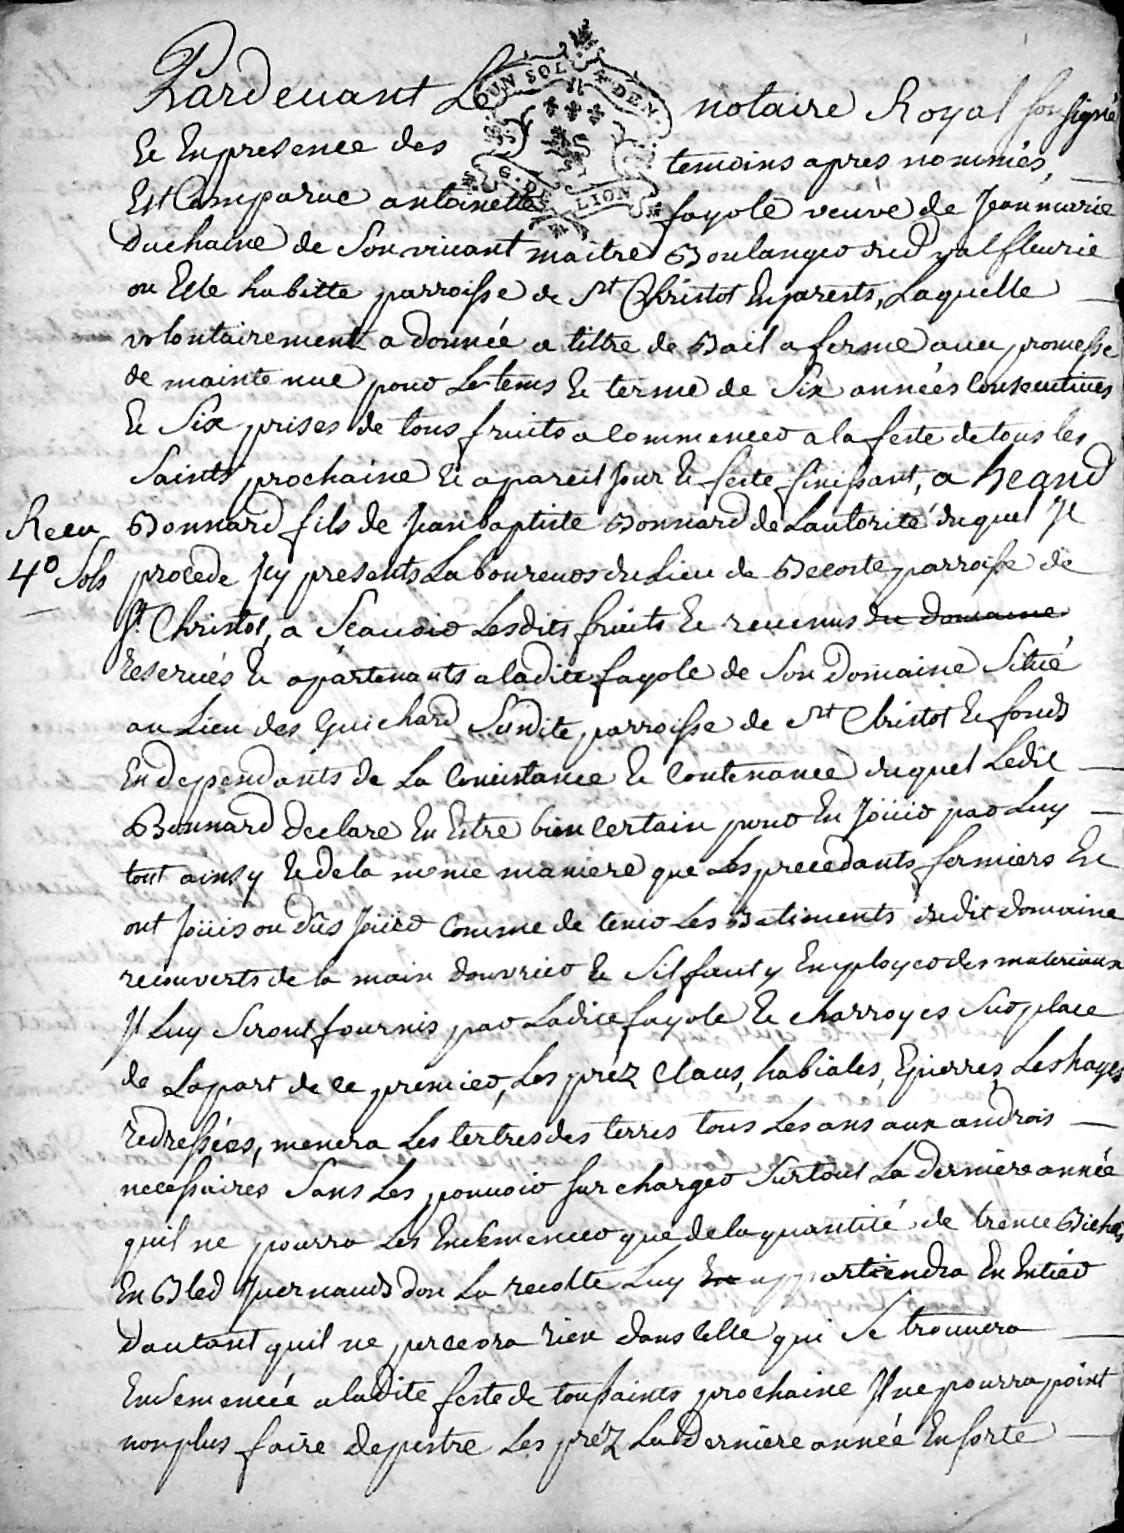 Pardevant Le notaire Royal soussigné
DUN SOL 4 DEN
G. DE LION
Et En presence des temoins apres nommés,
Est Comparue antoinette fayole veuve de Jean marie
Duchaine de Son vivant maitre Boulanger du valfleurie
ou Elle habitte parroisse de St Christot En jarests, Laquelle
volontairement a donnée a tittre de Bail a ferme avec promesse
de maintenue pour Le tems Et terme de Six années Consecutives
Et Six prises de tous fruits a Commencer a la feste de tous les
Saints prochaine Et a pareil Jour Et feste finissant, a
Recu
4º Sols
Bonnard fils de Jean baptiste Bonnard de Lautorité duquel Il
procede Icy presents Laboureurs du Lieu de Becoste parroisse de
St Christot, a Scavoir Lesdits fruits Et revenus du domaine
reservés Et apartenants a ladite fayole de Son Domaine Situé
au Lieu des Guichard Susdite parroisse de St Christot Et fonds
En dependants de La Consistance Et Contenance duquel Ledit
Bonnard declare En Estre bien Certain pour En Joüir par Luy
tout ainsy Et de la meme maniere que Les precedants fermiers En
ont Joüis ou dûs Joüir Comme de tenir Les Batiments dudit domaine
recouverts de la main douvrier Et Sil faut y Employer des materiaux
Il Luy Seront fournis par Ladite fayole Et charroyes Sur place
de Lapart de Ce premier, Les préz Claus, habialés, Epierrez, Les hayes
redressées, menera Les tertres des terres tous Les ans aux androis
necessaires Sans Les pouvoir surcharger Surtout La derniere année
quil ne pourra Les Ensemencer que de la quantité de trente Bichets
En Bled Ivernauds don La recolte Luy En appartiendra En Entier
Dautant quil ne percevra rien dans Celle qui Se trouvera
Ensemencée a ladite feste de toussaints prochaine Il ne pourra point
non plus faire depestre Les préz La Derniere année En sorte